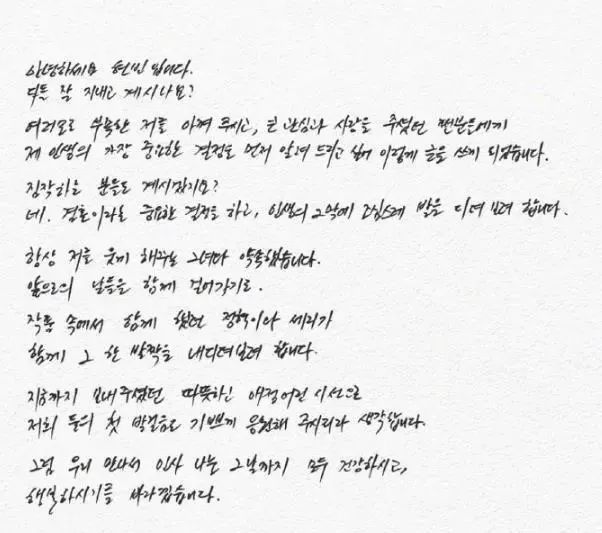 안녕하세요 현빈입니다.
다들 잘 지내고 계시나요?
여러모로 부족한 저를 아껴 주시고, 큰 관심과 사랑을 주셨던 팬분들에게
제 인생의 가장 중요한 결정을 먼저 알려 드리고 싶어 이렇게 글을 쓰게 되었습니다.
짐작하실 분들도 계시겠지요?
네. 결혼이라는 중요한 결정을 하고, 인생의 2막에 조심스레 발을 디뎌 보려 합니다.
항상 저를 웃게 해주는 그녀와 약속했습니다.
앞으로의 날들을 함께 걸어가기로.
작품 속에서 함께 했던 정혁이와 세리가
함께 그 한 발짝을 내디뎌보려 합니다.
지금까지 보내주셨던 따뜻하신 애정어린 시선으로
저희 둘의 첫 발걸음도 기쁘게 응원해 주시리라 생각합니다.
그럼 우리 만나서 인사 나눌 그날까지 모두 건강하시고,
행복하시기를 바라겠습니다.